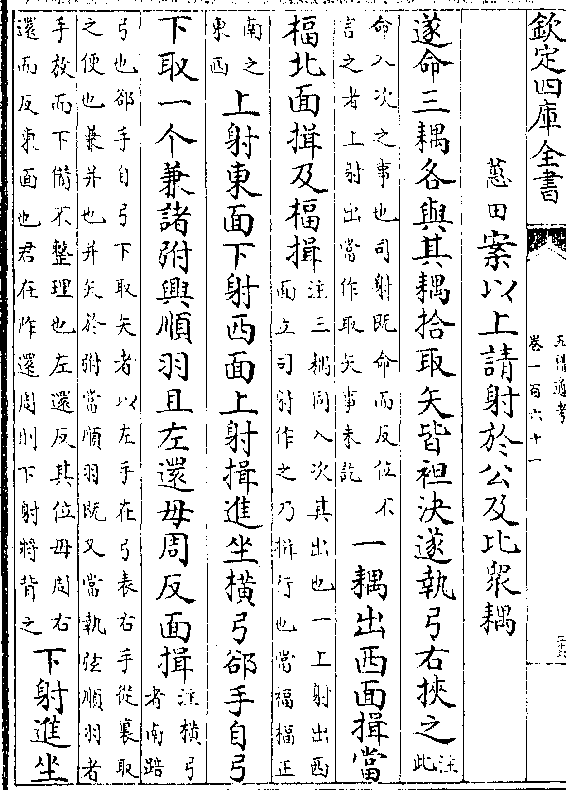 欽定四庫全書
五禮通考
卷一百六十一
蕙田案以上請射於公及比衆耦
遂命三耦各與其耦拾取矢皆袒決遂執弓右挾之
注
此
命入次之事也司射既命而反位不
言之者上射出當作取矢事未訖
一耦出西面揖當
楅北面揖及楅揖
注三耦同入次其出也一上射出西
面立司射作之乃揖行也當楅楅正
南之
東西
上射東面下射西面上射揖進坐橫弓郤手自弓
下取一个兼諸弣興順羽且左還毋周反面揖
注橫弓
者南踣
弓也郤手自弓下取矢者以左手在弓表右手從裏取
之便也兼并也并矢於弣當順羽既又當執弦順羽者
手放而下備不整理也左還反其位毋周右
還而反東面也君在阼還周則下射將背之
下射進坐